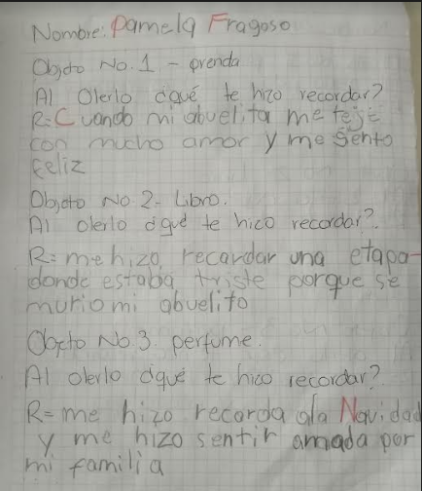 Nombre: Pamela Fragoso
Objto No. 1 - prenda
Al Olerlo ¿qué te hizo recordar?
R=Cuando mi abuelita me teje
con mucho amor y me sento
feliz
Objoto No 2- Libro.
Al olerlo ¿qué te hico recordar?.
R= me hizo recardar una etapa
donde estaba triste porque se
murio mi abuelito
Objcto No.3. perfume.
Al olerlo ¿qué te hico recordar?
R= me hizo recorda ala Navidad
y me hizo sentir amada por
mi familia